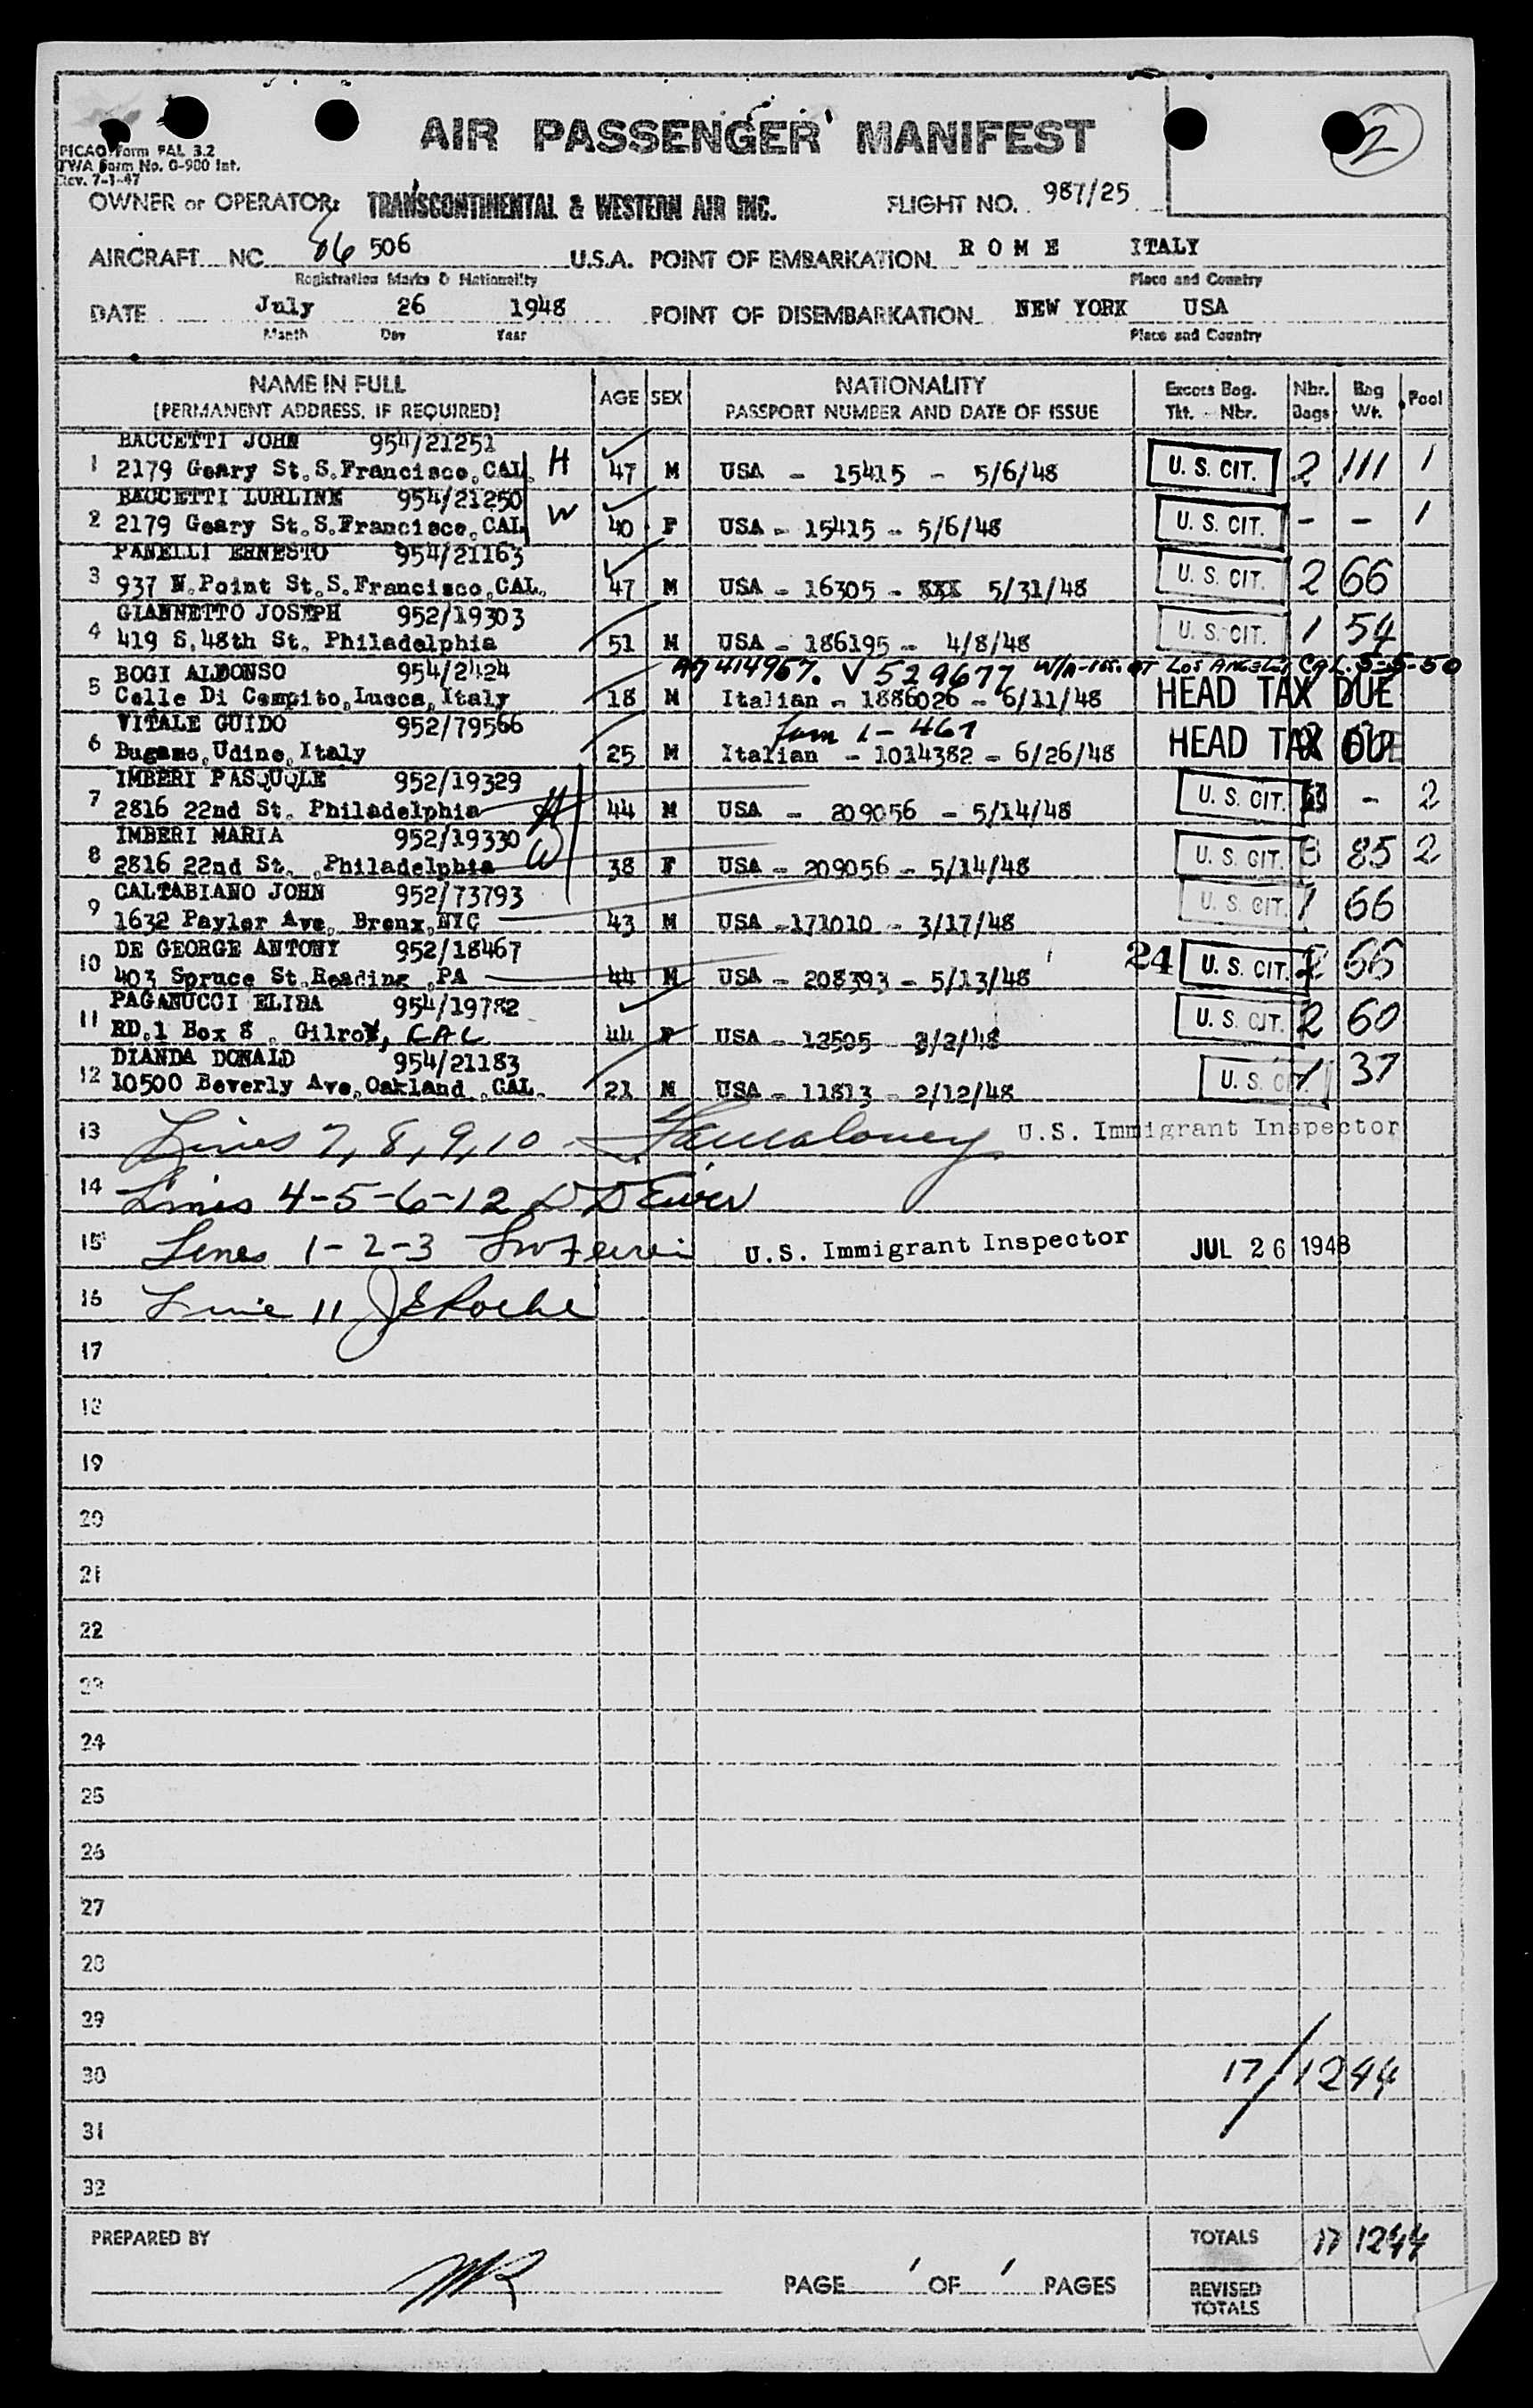 AIR PASSENGER MANIFEST
2
PICAO Form FAL 3.2
TWA Form No. G-900 Int.
Rev. 7-1-47
OWNER or OPERATOR: TRANSCONTINENTAL & WESTERN AIR INC. FLIGHT NO. 987/25
AIRCRAFT NC 86 506 U.S.A. POINT OF EMBARKATION R O M E ITALY
Registration Marks & Nationality Place and Country
DATE July 26 1948 POINT OF DISEMBARKATION NEW YORK USA
Month Day Year Place and Country
NAME IN FULL AGE SEX NATIONALITY Excess Bag. Nbr. Bag Pool
[PERMANENT ADDRESS, IF REQUIRED] PASSPORT NUMBER AND DATE OF ISSUE Tkt. - Nbr. Bags Wt.
BACCETTI JOHN 954/21251
1 2179 Geary St.S.Francisco,CAL. H 47 M USA - 15415 - 5/6/48 U. S. CIT. 2 111 1
BACCETTI LURLINE 954/21250
2 2179 Geary St.S.Francisco,CAL W 40 F USA - 15415 - 5/6/48 U. S. CIT. - - 1
PANELLI ERNESTO 954/21163
3 937 N.Point St.S.Francisco,CAL. 47 M USA - 16305 - XXX 5/31/48 U. S. CIT. 2 66
GIANNETTO JOSEPH 952/19303
4 419 S.48th St. Philadelphia 51 M USA - 186195 - 4/8/48 U. S. CIT. 1 54
BOGI ALDONSO 954/2424 414957. V 529677 LOS ANGELES CAL. 5-5-50
5 Colle Di Compito,Lucca,Italy 18 M Italian - 1886026 - 6/11/48 HEAD TAX DUE
VITALE GUIDO 952/79566 1-467
6 Italy 25 M Italian - 1014382 - 6/26/48 HEAD TAX DUE
IMBERI PASQUQLE 952/19329
7 2816 22nd St. Philadelphia H 44 M USA - 209056 - 5/14/48 U. S. CIT. - 2
IMBERI MARIA 952/19330
8 2816 22nd St. ,Philadelphia W 38 F USA - 209056 - 5/14/48 U. S. CIT. 3 85 2
CALTABIANO JOHN 952/73793
9 1632 Paylor Ave, Bronx,NYC 43 M USA -171010 - 3/17/48 U. S. CIT. 1 66
DE GEORGE ANTONY 952/18467
10 403 Spruce St.Reading ,PA 44 M USA - 208393 - 5/13/48 24 U. S. CIT. 2 66
PAGANUCCI ELIDA 954/19782
11 RD.1 Box 8 . Gilroy, CAL 44 F USA - 12505 2/2/48 U. S. CIT. 2 60
DIANDA DONALD 954/21183
12 10500 Beverly Ave,Oakland ,CAL. 21 M USA - 11813 - 2/12/48 U. S. CIT. 1 37
13 Lines 7, 8, 9, 10 - U.S. Immigrant Inspector
14 Lines 4-5-6-12
15 Lines 1-2-3 U.S. Immigrant Inspector JUL 26 1948
16 Line 11 J E Roche
17
18
19
20
21
22
23
24
25
26
27
28
29
30 17/1244
31
32
PREPARED BY TOTALS 17 1244
PAGE 1 OF 1 PAGES REVISED
TOTALS